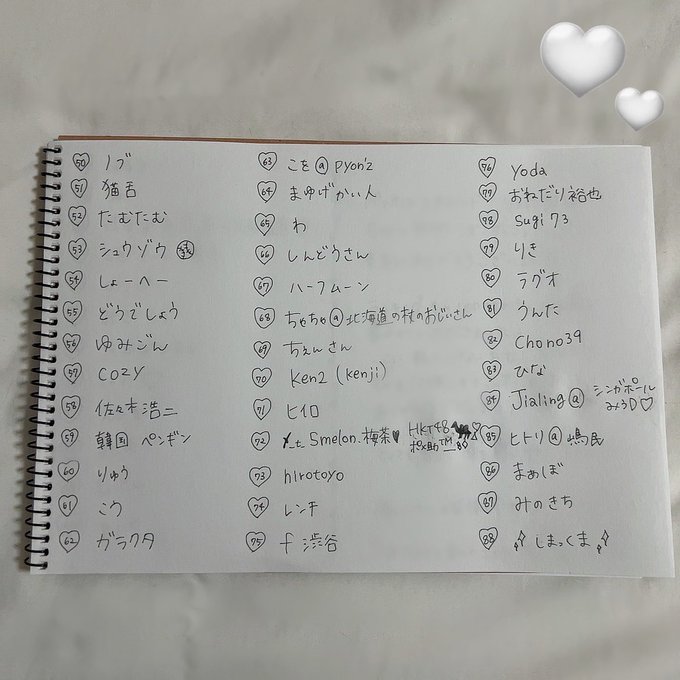 50 ノブ
51 猫舌
52 たむたむ
53 シュウゾウ
54 しょーへー
55 どうでしょう
56 ゆみごん
57 COZY
58 佐々木浩二
59 韓国 ペンギン
60 りゅう
61 こう
62 ガラクタ
63 こを@pyon'z
64 まゆげかい人
65 わ
66 しんどうさん
67 ハーフムーン
68 ちゃちゃ@北海道の杖のおじいさん
69 ちぇんさん
70 Ken2 (kenji)
71 ヒイロ
72 Smelon 梅茶♥ HKT48
73 hirotoyo
74 レンチ
75 f 渋谷
76 Yoda
77 おねだり裕也
78 sugi73
79 りき
80 ラグオ
81 うんた
82 Chono39
83 ひな
84 Jialing@シンガポール
みろD♡
85 ヒトリ@嶋民
86 まぁしぼ
87 みのきち
88 しまっくま